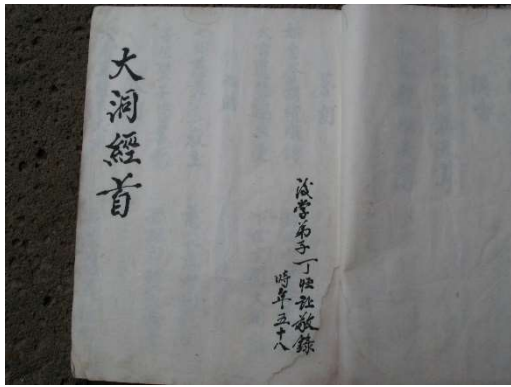 大洞經首
後学弟子丁 敬錄
時年五十八